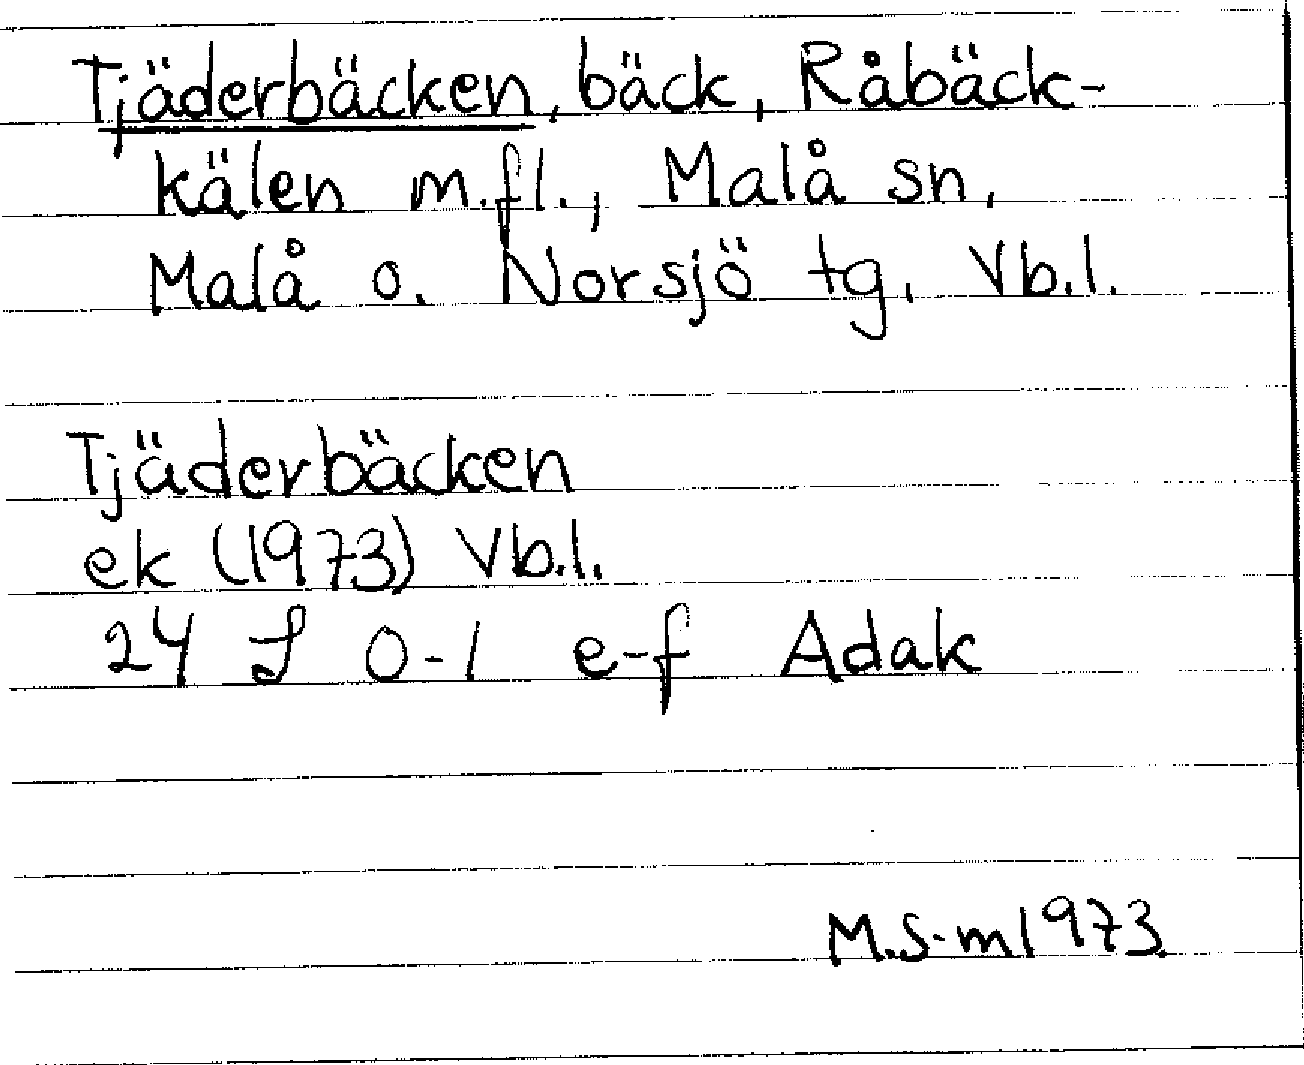 Tjäderbäcken, bäck, Råbäck-
kälen m.fl., Malå sn,
Malå o. Norsjö tg, Vb.l.
Tjäderbäcken
ek (1973) Vb.l.
24 J 0-1 e-f Adak
M.S-m 1973.